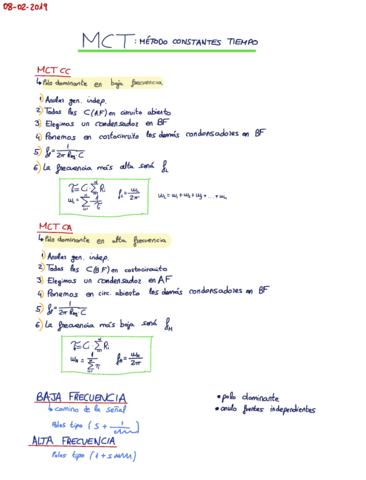 08-02-2019
MCT: MÉTODO CONSTANTES TIEMPO
MCT CC
↳ Polo dominante en baja frecuencia
1) Anular gen. indep.
2) Todos los C(AF) en circuito abierto
3) Elegimos un condensador en BF
4) Ponemos en cortocircuito los demás condensadores en BF
5) f = 1 / 2π Req · C
6) La frecuencia más alta será fL
τi = Ci Σ Ri
ωL = Σ 1/τi fL = ωL/2π ωL = ω1 + ω2 + ω3 + ... + ωn
MCT CA
↳ Polo dominante en alta frecuencia
1) Anular gen. indep.
2) Todos los C(BF) en cortocircuito
3) Elegimos un condensador en AF
4) Ponemos en circ. abierto los demás condensadores en BF
5) f = 1 / 2π Req · C
6) La frecuencia más baja será fH
τi = Ci Σ Ri
ωH = 1 / Σ τi fH = ωH/2π
BAJA FRECUENCIA
↳ camino de la señal
Polos tipo (s + 1/
ALTA FRECUENCIA
Polos tipo (1 + s
• polo dominante
• anulo fuentes independientes